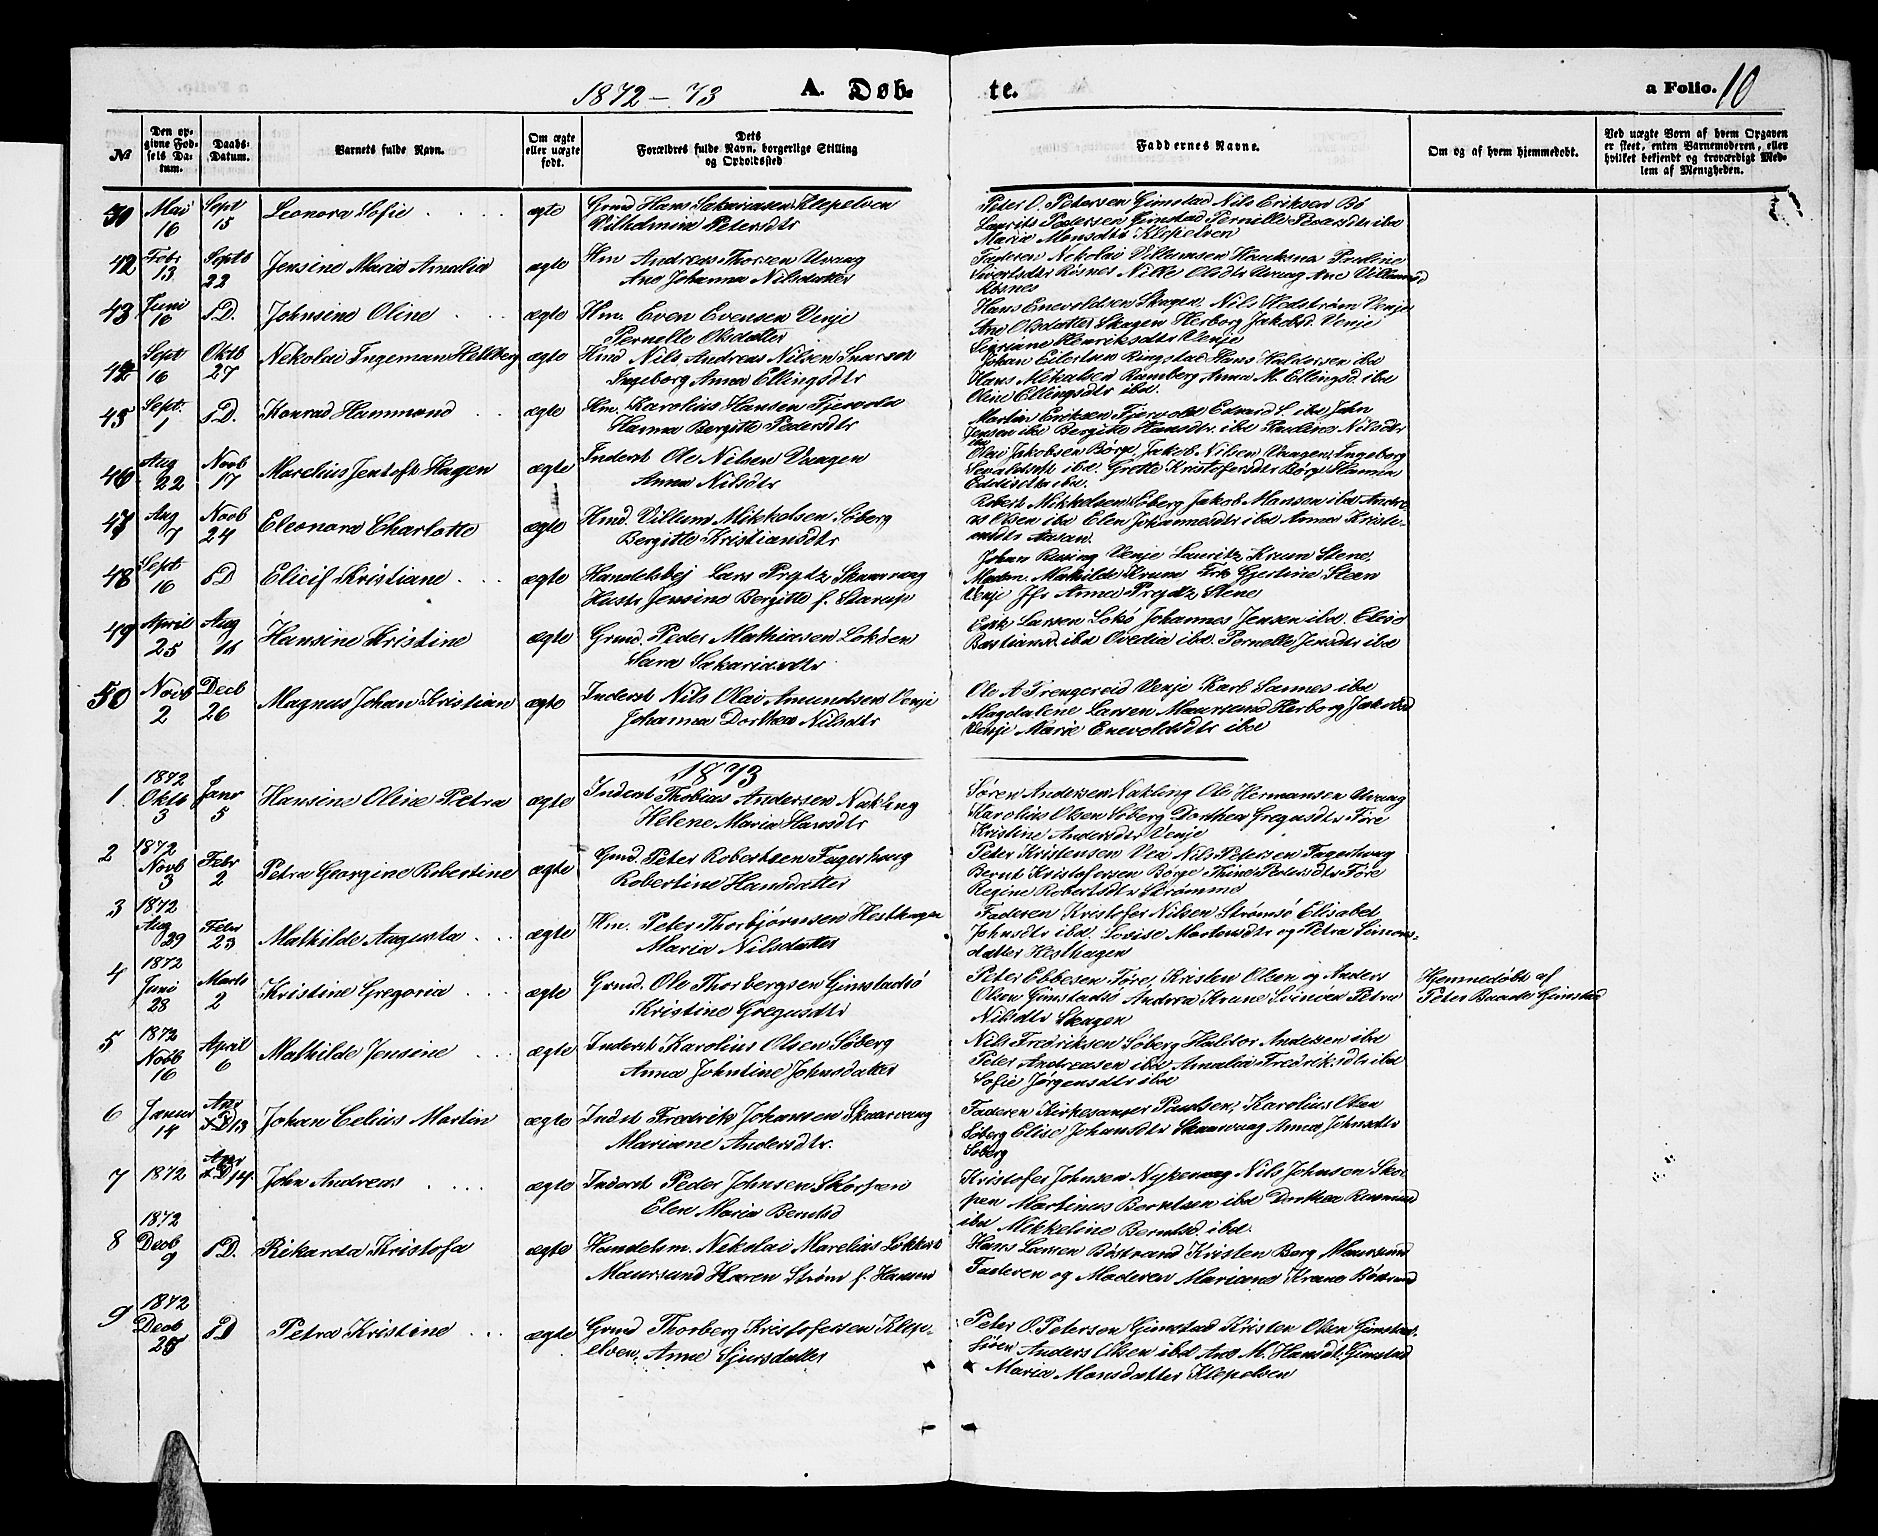 1872-73 A. Døb- te. a Folio. 10
No
Den op-
givne Fød-
sels Da-
tum.
Daabs-
Datum.
Barnets fulde Navn.
Om ægte
eller uægte
født.
Dets
Forældres fulde Navn, borgerlige Stilling
og Opholdssted
Faddernes Navne.
Om og af hvem hjemmedøbt.
Ved uægte Børn af hvem Opgaven
er skeet, enten Barnemoderen, eller
hvilket bekjendt og troværdigt Med-
lem af Menigheden.
Mai 16 Sept 15 Leonora Sofie ægte Grmd Hans Sakariasen Klepelven
Vilhelmine Petersdtr
Peter O. Petersen Gimstad Nils Eriksen Bø
Laurits Pedersen Gimstad Pernille Pedersdtr ibd
Maria Monsdtr Klepelven
42 Febr 13 Septb 22 Jensine Maria Amalia ægte Hm Andreas Thorsen Uvaag
Ane Johanna Nilsdatter
Faderen Nekolai Villumsen Pauline
Risnes Nille Olsdtr Uvaag Ane Villumsd
Risnes
43 Juni 16 s.D. Johnsine Oline ægte Hm. Even Evensen Venje
Pernelle Olsdatter
Hans Enevoldsen Skagen, Nils Hedstrøm Venje
Ane Olsdatter Skagen Herborg Jakobsd. Venje
Henriksdtr Venje
Sept 16 Oktb 27 Nekolai Ingeman Hellberg ægte Hmd Nils Andreas Nilsen
Ingeborg Anna Ellingsdtr
Johan Eilertsen Ringstad Hans Haldorsen ibd
Hans Mikalsen Ramberg Anna M. Ellingsd. ibd
Oline Ellingsdtr ibd.
45 Sept. 1 s.D. Konrad Hammond ægte Hm. Karolius Hansen Fjærvold
Hanna Bergitte Pedersdtr
Martin Eriksen Fjervold Edvard L. ibd John
Jensen ibd Bergitte Hansdtr. ibd Pauline Nilsdtr
ibd
46 Aug 22 Novb 17 Marelius Jentoft Hagen ægte Inderst Ole Nilsen Vaagen
Anna Nilsdtr
Olai Jakobsen Børge, Jakob Nilsen Vaagen, Ingeborg
ibd. Grette Kristofersdtr Børge Hanna
ibd.
47 Aug 7 Novb 24 Eleonora Charlotte ægte Hmd. Villum Mikkelsen Søberg
Bergitte Kristiansdtr
Robert Mikkelsen Søberg Jakob Hansen ibd Andre-
as Olsen ibd Elen Johannesdtr ibd Anna Kristi-
ansdtr Aasan.
48 Sept 16 s.D Elicif Kristiane ægte Handelsbej Lars Prydtz Skaarvaag
Hustr Jensine Bergitte f. Starup
Johan Rusing Venje Lauritz Krum Stene,
Madm. Mathilde Krum Frk Gjertine Steen
Venje Jfr Anna Prydtz Stene
49 April 25 Aug Hansine Kristine ægte Grmd. Peder Mathiasen Lokøen
Sara Sakariasdtr
Erik Larsen Lokø Johannes Jensen ibd. Elise
Bastiansd. ibd Ovedia ibd. Pernelle Jensdtr ibd
50 Novb 2 Decb 26 Magnus Johan Kristian ægte Inderst Nils Olai Amundsen Venje
Johanna Dorthea Nilsdtr
Ole A Trengereid Venje Karl Sannes ibd
Magdalene Larsen Maursund Herborg Jakobsd
Venje Marie Enevoldsdtr ibd
1873
1 1872 Oktb 3 Janr 5 Hansine Oline Petra ægte Inderst Thobias Andersen Nakling
Helene Maria Hansdtr
Søren Andersen Nakling Ole Hermansen Uvaag
Karolius Olsen Søberg Dorthea Gregusdtr Føre
Kristine Andersdtr Venje
2 1872 Novb 3 Febr 2 Petra Georgine Robertine ægte Grmd. Peter Robertsen Fagerhaug
Robertine Hansdatter
Peter Kristensen Vea Nils Petersen Fagerhaug
Bernt Kristofersen Børge Thine Petersdtr Føre
Regine Robertsdtr Strømme
3 1872 Aug 29 Febr 23 Mathilde Augusta ægte Hm. Peter Thorbjørnsen Hesthagen
Maria Nilsdatter
Faderen Kristofer Nilsen Strømsø Elisabet
Johnsdtr ibd. Lovise Mortensdtr og Petra Simons-
datter Hesthagen
4 1872 Juni 28 Marts 2 Kristine Gregoria ægte Grmd. Ole Thorbergsen Gimstadsø
Kristine Gregusdtr
Peter Ebbesen Føre, Kristen Olsen og Anders
Olsen Gimstadsø Andrea Krane Svinøen Petra
Nilsdtr Skagen
Hjemmedøbt af
Peter Baade Gimstad
5 1872 Novb 16 April 6 Mathilde Jensine ægte Inderst Karolius Olsen Søberg
Anna Johntine Johnsdatter
Nils Fredriksen Søberg Haldor Andersen ibd
Peter Andreasen ibd Amalia Fredriksdtr ibd
Sofie Jørgensdtr ibd
6 Januar 14 Apr 13 Johan Celius Martin ægte Indst Fredrik Johansen Skaarvaag
Mariane Andersdtr.
Faderen Kirkesanger Paulsen, Karolius Olsen
Søberg Elise Johansdtr Skaarvaag Anna Johnsdtr
Søberg
7 1872 Apr 14. John Andreas ægte Inderst Peder Johnsen Skorpen
Elen Maria Berntsd
Kristofer Johnsen Nykvaag Nils Johnsen Skor-
pen Martinus Berntsen ibd Dorthea Rasmusd
ibd Mikkeline Berntsd. ibd.
8 1872 Decb 9 s.D. Rikarda Kristofa ægte Handelsm. Nekolai Marelius Lokkert
Maursund Karen Strøm f. Hansen
Hans Larsen Bøstrand Kristen Berg Maursund
Faderen og Moderen Mariane Krane Bøstrand
9 1872 Decb 28 s.D Petra Kristine ægte Grmd Thorberg Kristofersen Klep-
elven, Anne Sjursdatter
Peter O. Petersen Gimstad Kristen Olsen Gimstad-
søen Anders Olsen ibd Ane M. Hansdt. Gimstad
Maria Monsdatter Klepelven